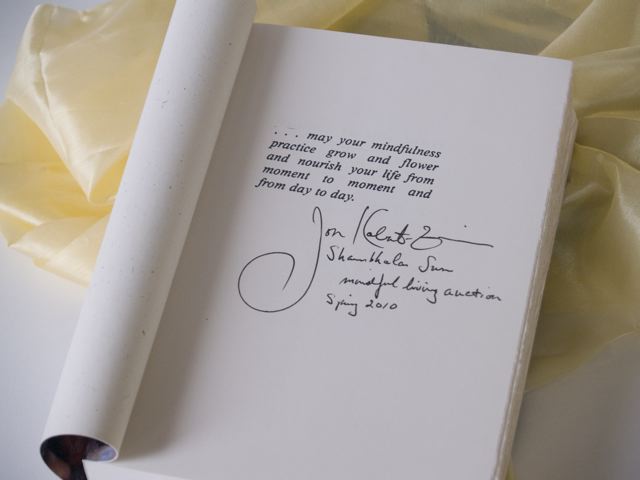 . . . may your mindfulness
practice grow and flower
and nourish your life from
moment to moment and
from day to day.
Jon Kabat-Zinn
Shambhala Sun
mindful living auction
Spring 2010